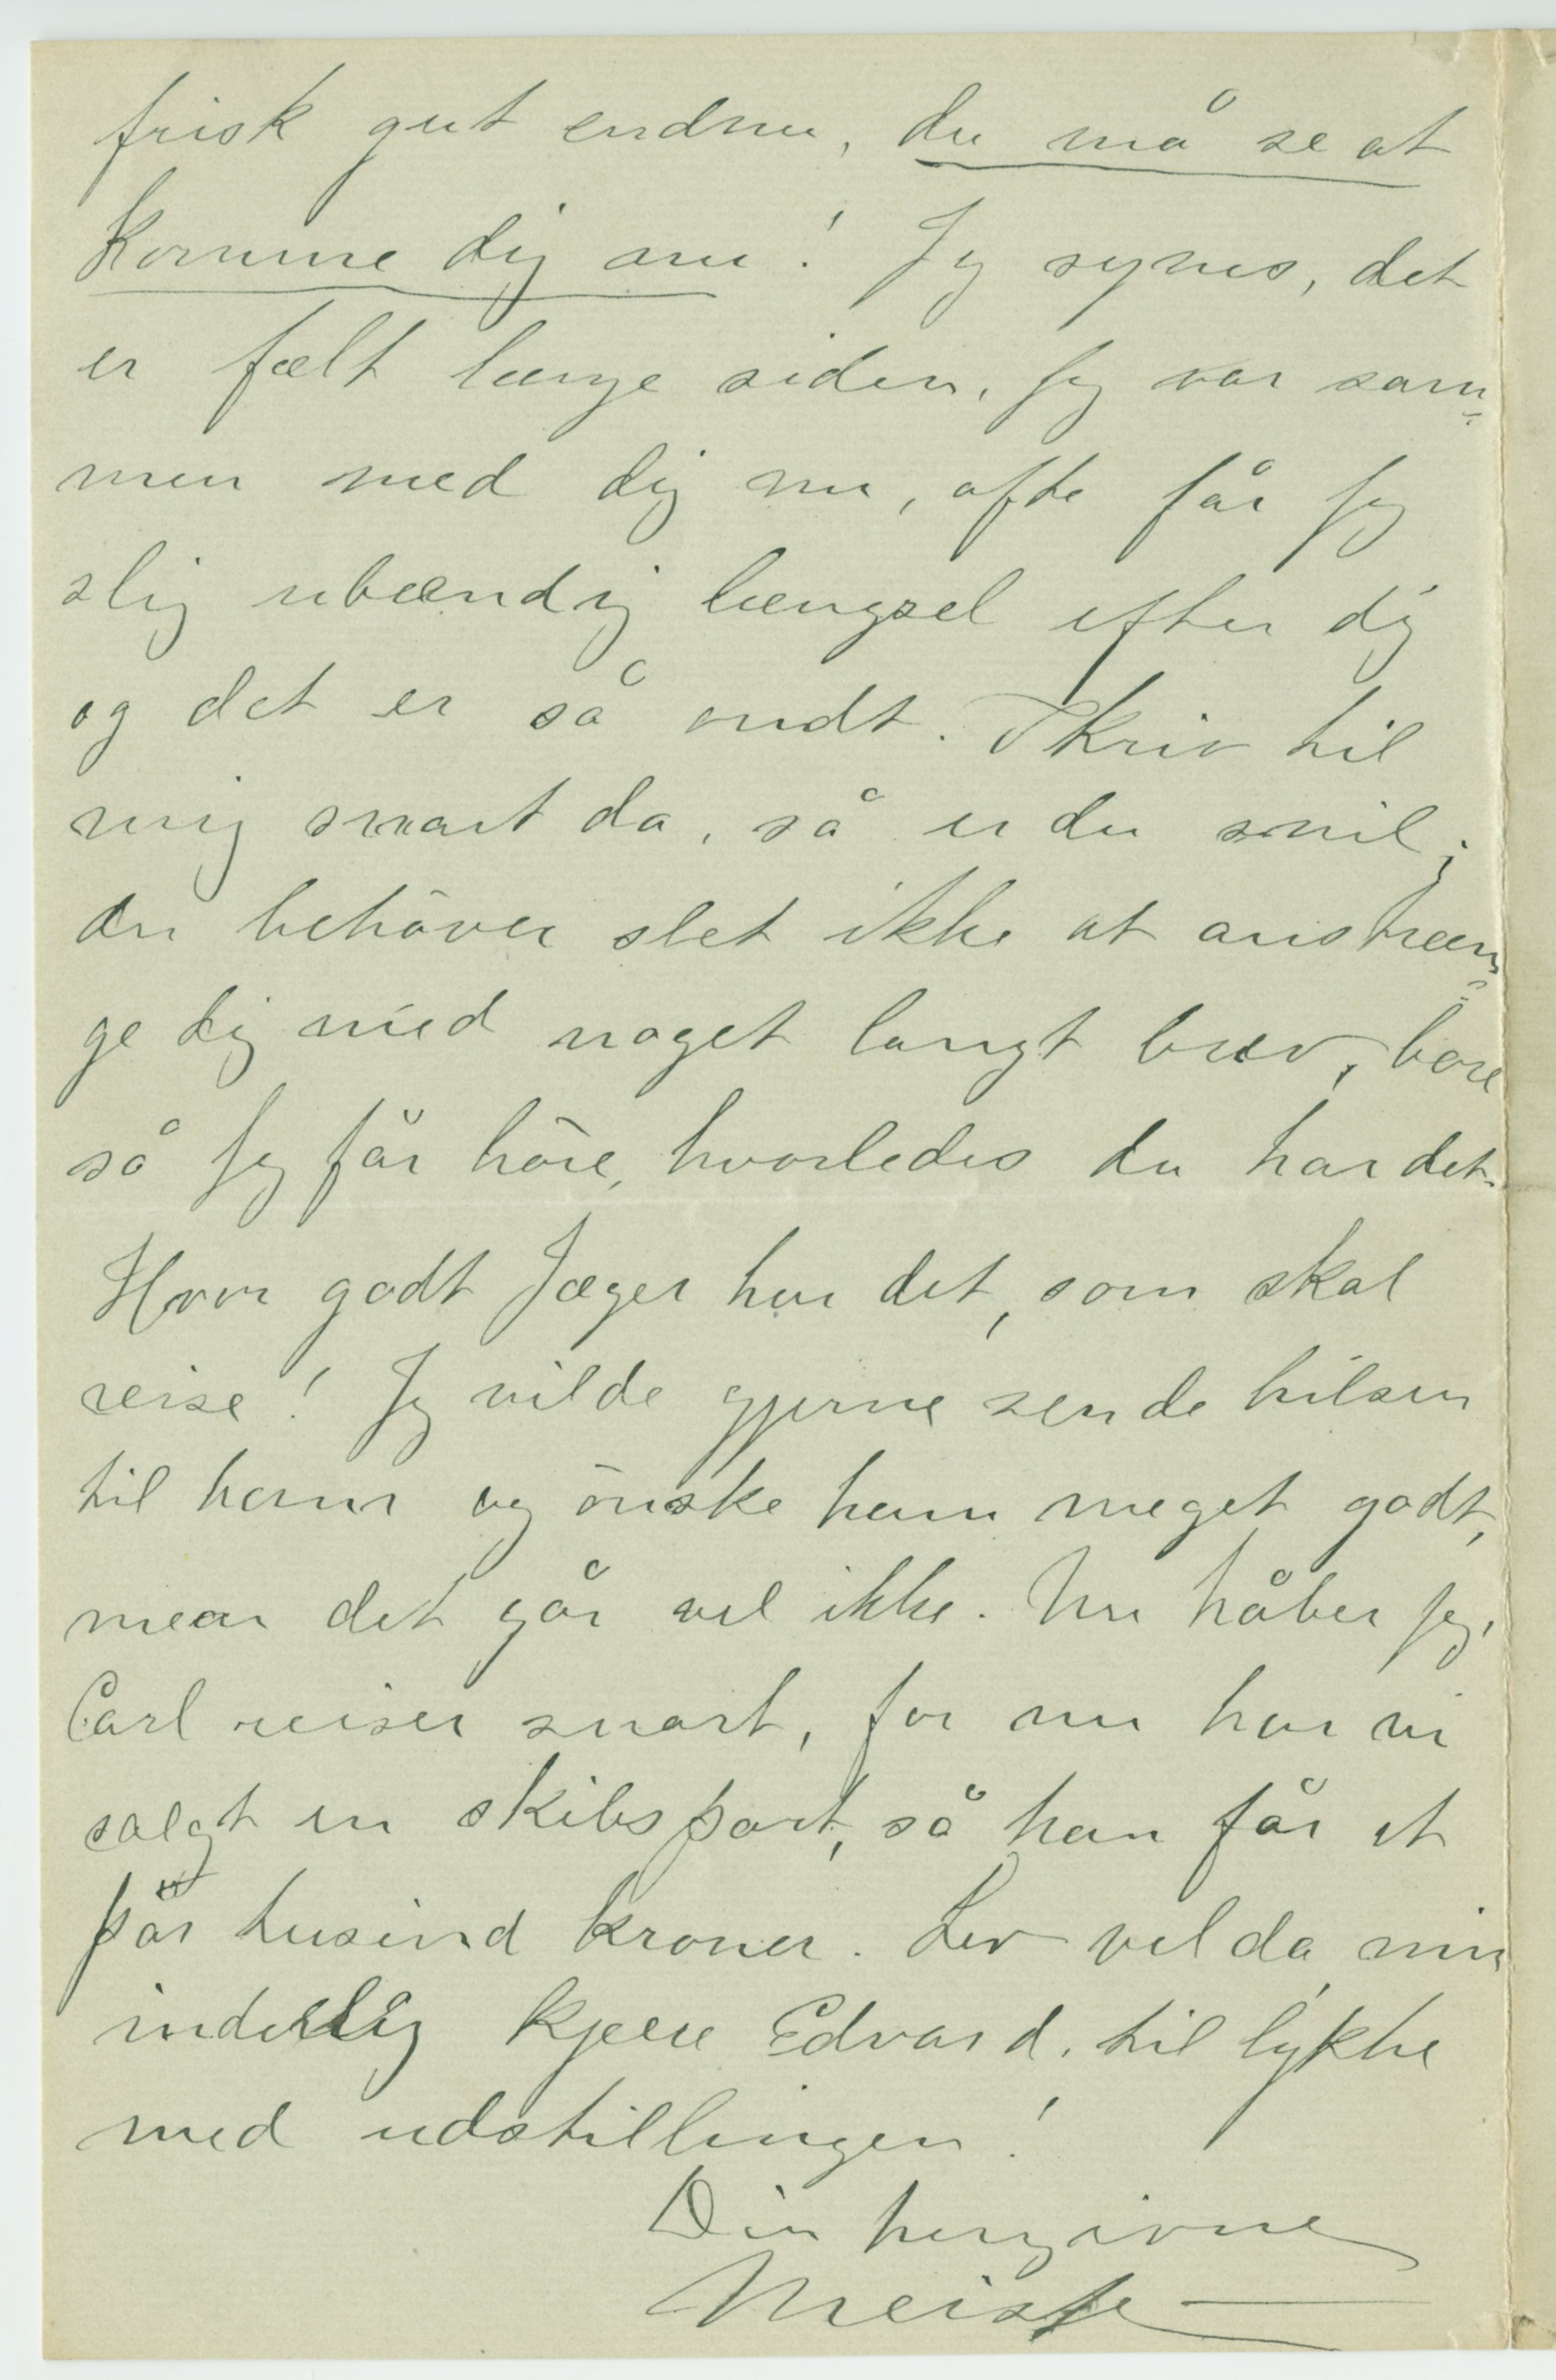 frisk gut endnu, du må se at
komme dig nu! Jeg synes, det
er fælt længe siden, jeg var sam=
men med dig nu, ofte får jeg
slig ubændig længsel efter dig
og det er så ondt. Skriv til
mig snart da, så er du snil;
du behöver slet ikke at anstræn=
ge dig med noget langt brev, bare
så jeg får höre, hvorledes du har det.
Hvor godt Jæger har det, som skal
reise! Jeg vilde gjerne sende hilsen
til ham og önske ham meget godt,
men det går vel ikke. Nu håber jeg,
Carl reiser snart, for nu har vi
solgt en skibspart, så han får et
pår tusind kroner. Lev vel da, min
inderlig kjære Edvard, til lykke
med udstillingen!
Din hengivne
Meisse